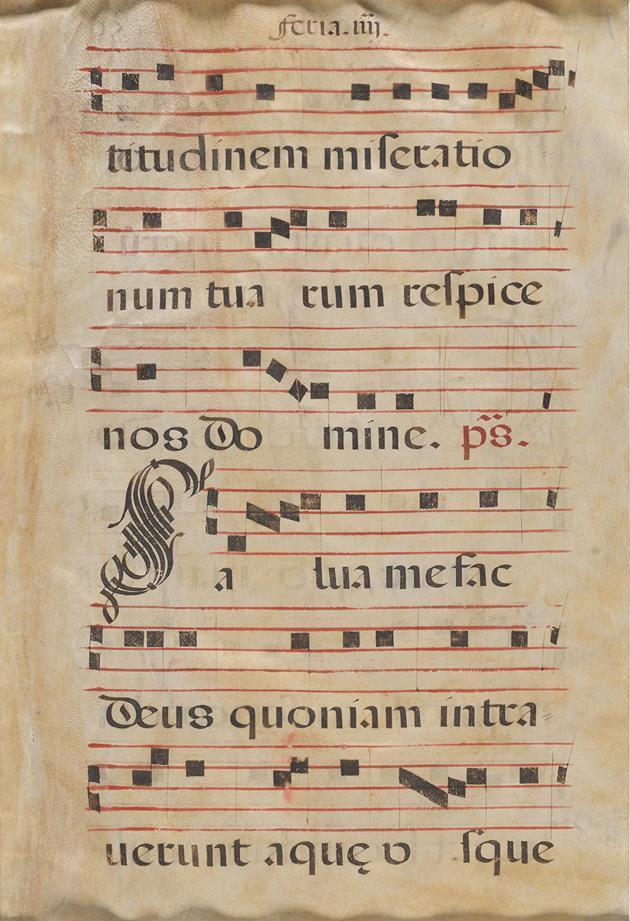 feria.iiij.
titudinem miſeratio
num tua rum reſpice
nos Do mine. ps.
Sa lua me fac
Deus quoniam intra=
uerunt aquę v ſque